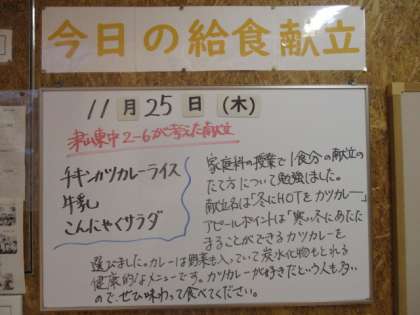 今日の給食献立
11月25日(木)
津山東中2-6が考えた献立
チキンカツカレーライス
牛乳
こんにゃくサラダ
家庭科の授業で1食分の献立の
たて方について勉強しました。
献立名は「冬にHOTをカツカレー」
アピールポイントは「寒い冬にあたた
まることができるカツカレーを
選びました。カレーは野菜も入っていて炭水化物もとれる
健康的なメニューです。カツカレーが好きだという人も多い
ので、ぜひ味わって食べてください。